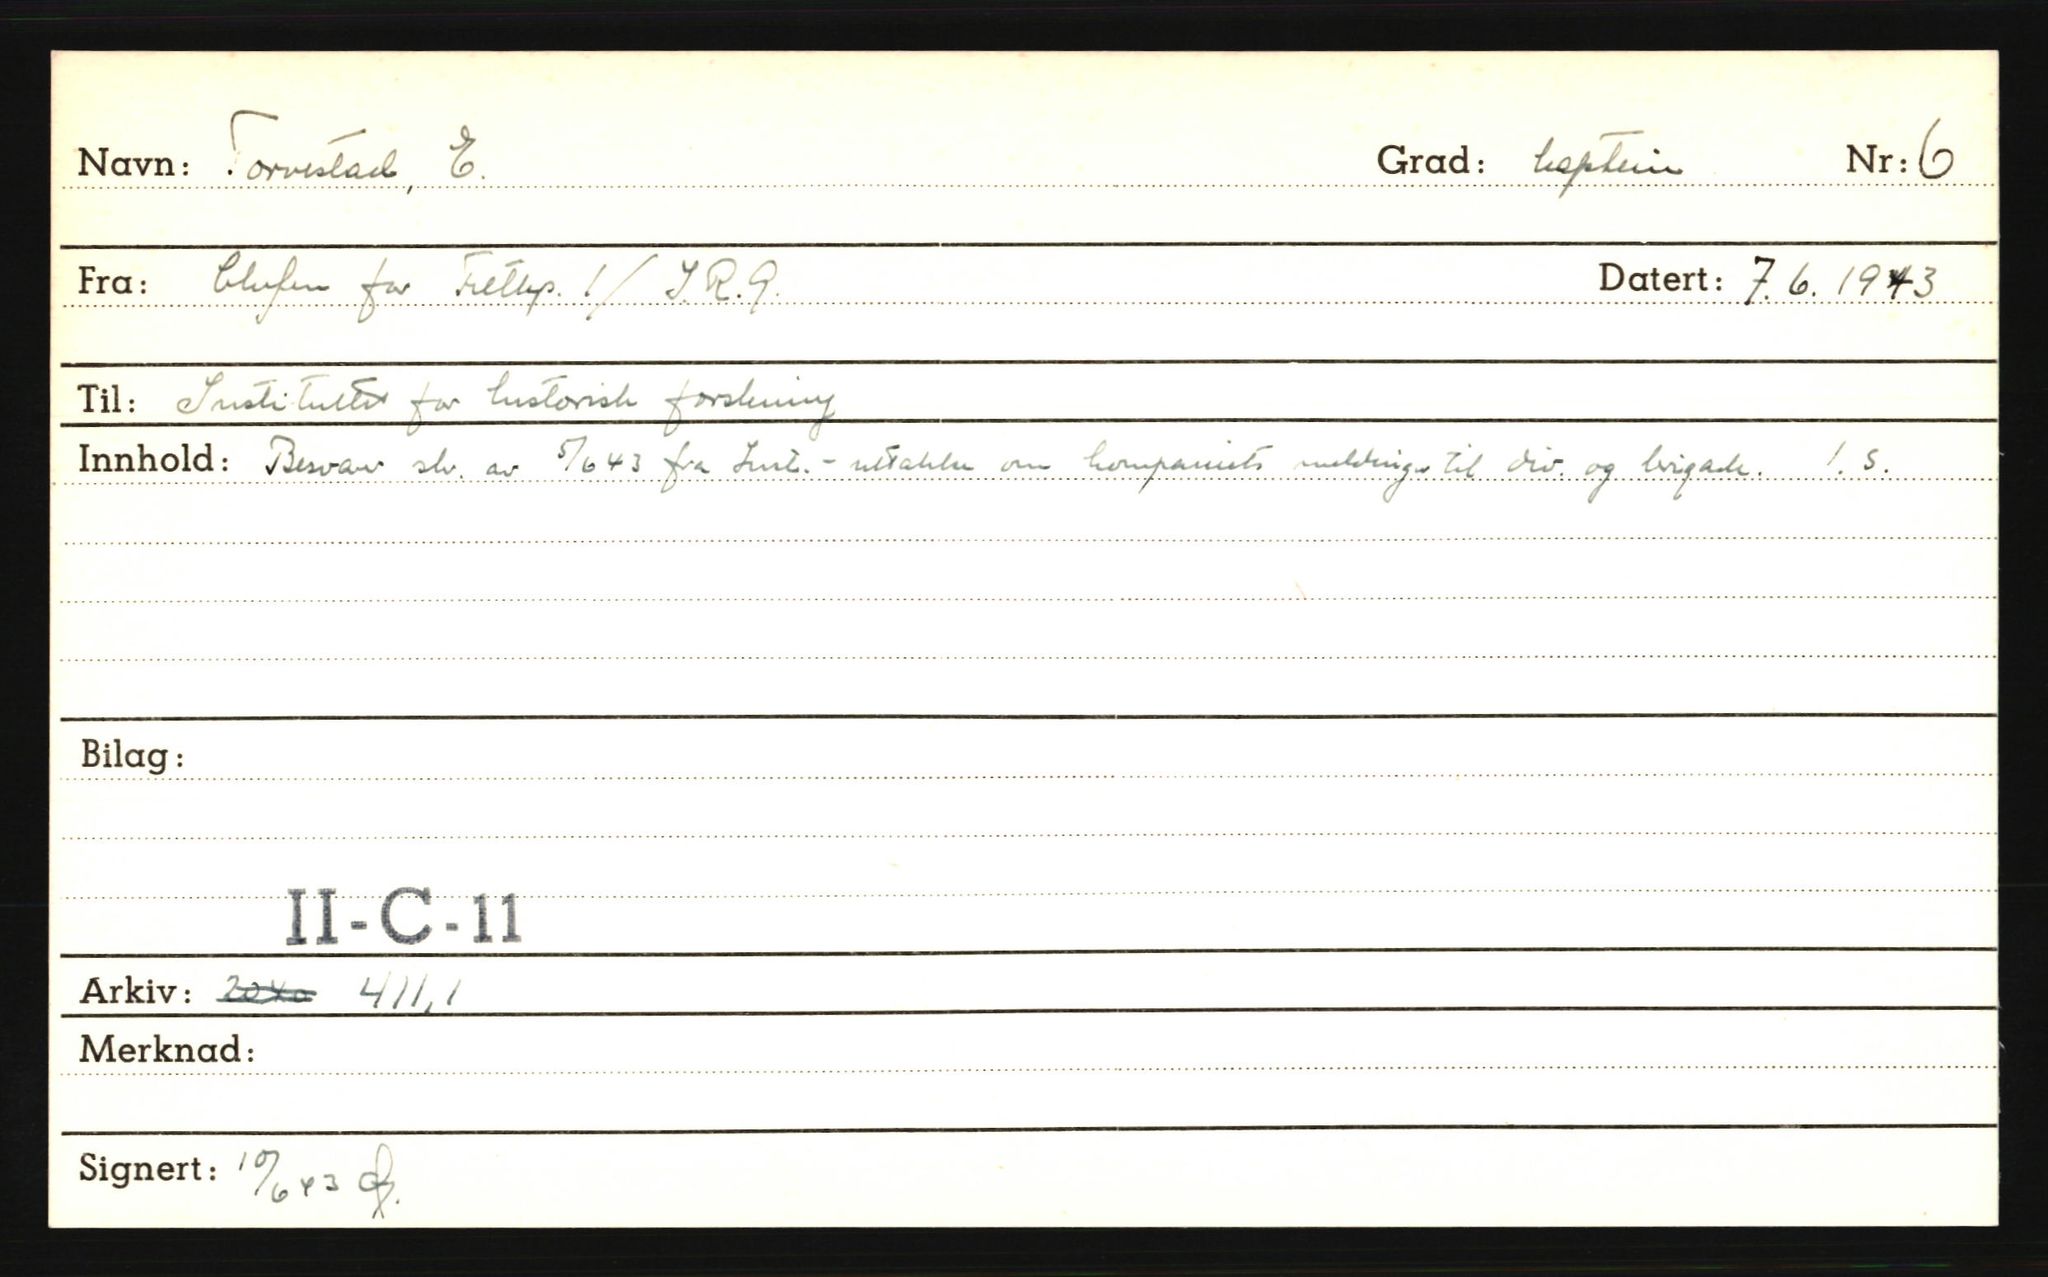 Navn: Torvestad, E. Grad: kaptein Nr: 6
Fra: Chefen for 1/ I.R.9. Datert: 7.6.1943
Til: Instituttet for historisk forskning
Innhold: Besvarer skr. av 5/6 43 fra Inst. - uttalelse om kompaniets meldinger til div. og brigade. 1 s.
Bilag:
II-C-11
Arkiv: 411,1
Merknad:
Signert: 10/6 43